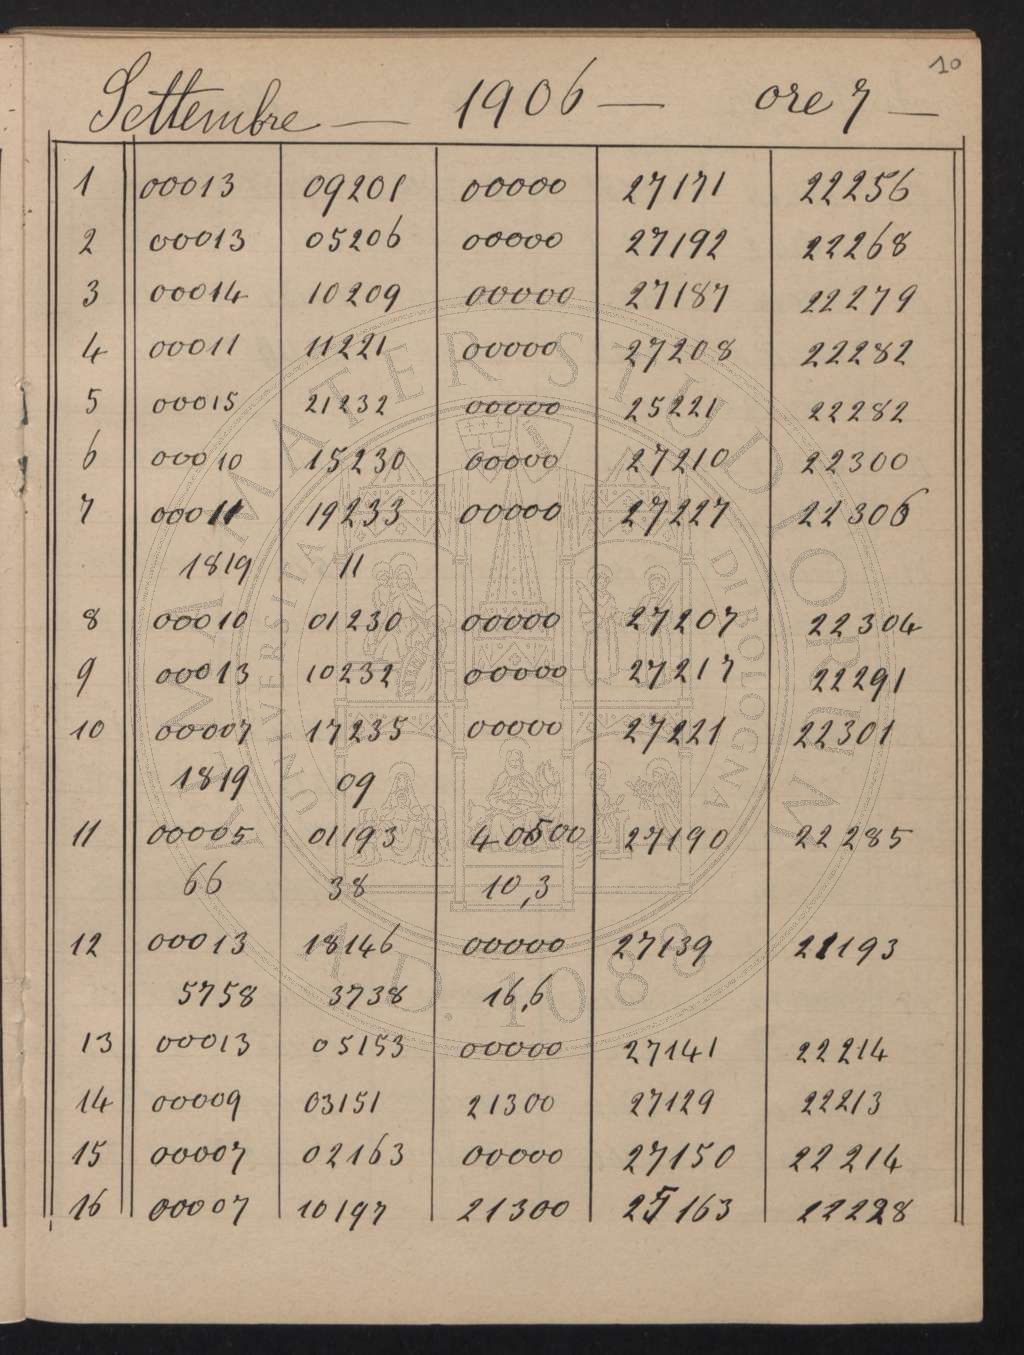 10
Settembre — 1906 — ore 7 —
1 00013 09201 00000 27171 22256
2 00013 05206 00000 27192 22268
3 00014 10209 00000 27187 22279
4 00011 11221 00000 27208 22282
5 00015 21232 00000 25221 22282
6 00010 15230 00000 27210 22300
7 00011 19233 00000 27227 22306
1819 11
8 00010 01230 00000 27207 22304
9 00013 10232 00000 27217 22291
10 00007 17235 00000 27221 22301
1819 09
11 00005 01193 40500 27190 22285
66 38 10,3
12 00013 18146 00000 27139 22193
5758 3738 16,6
13 00013 05153 00000 27141 22214
14 00009 03151 21300 27129 22213
15 00007 02163 00000 27150 22214
16 00007 10197 21300 25163 22228
ALMA MATER STUDIORUM
UNIVERSITÀ DI BOLOGNA
A.D. 1088